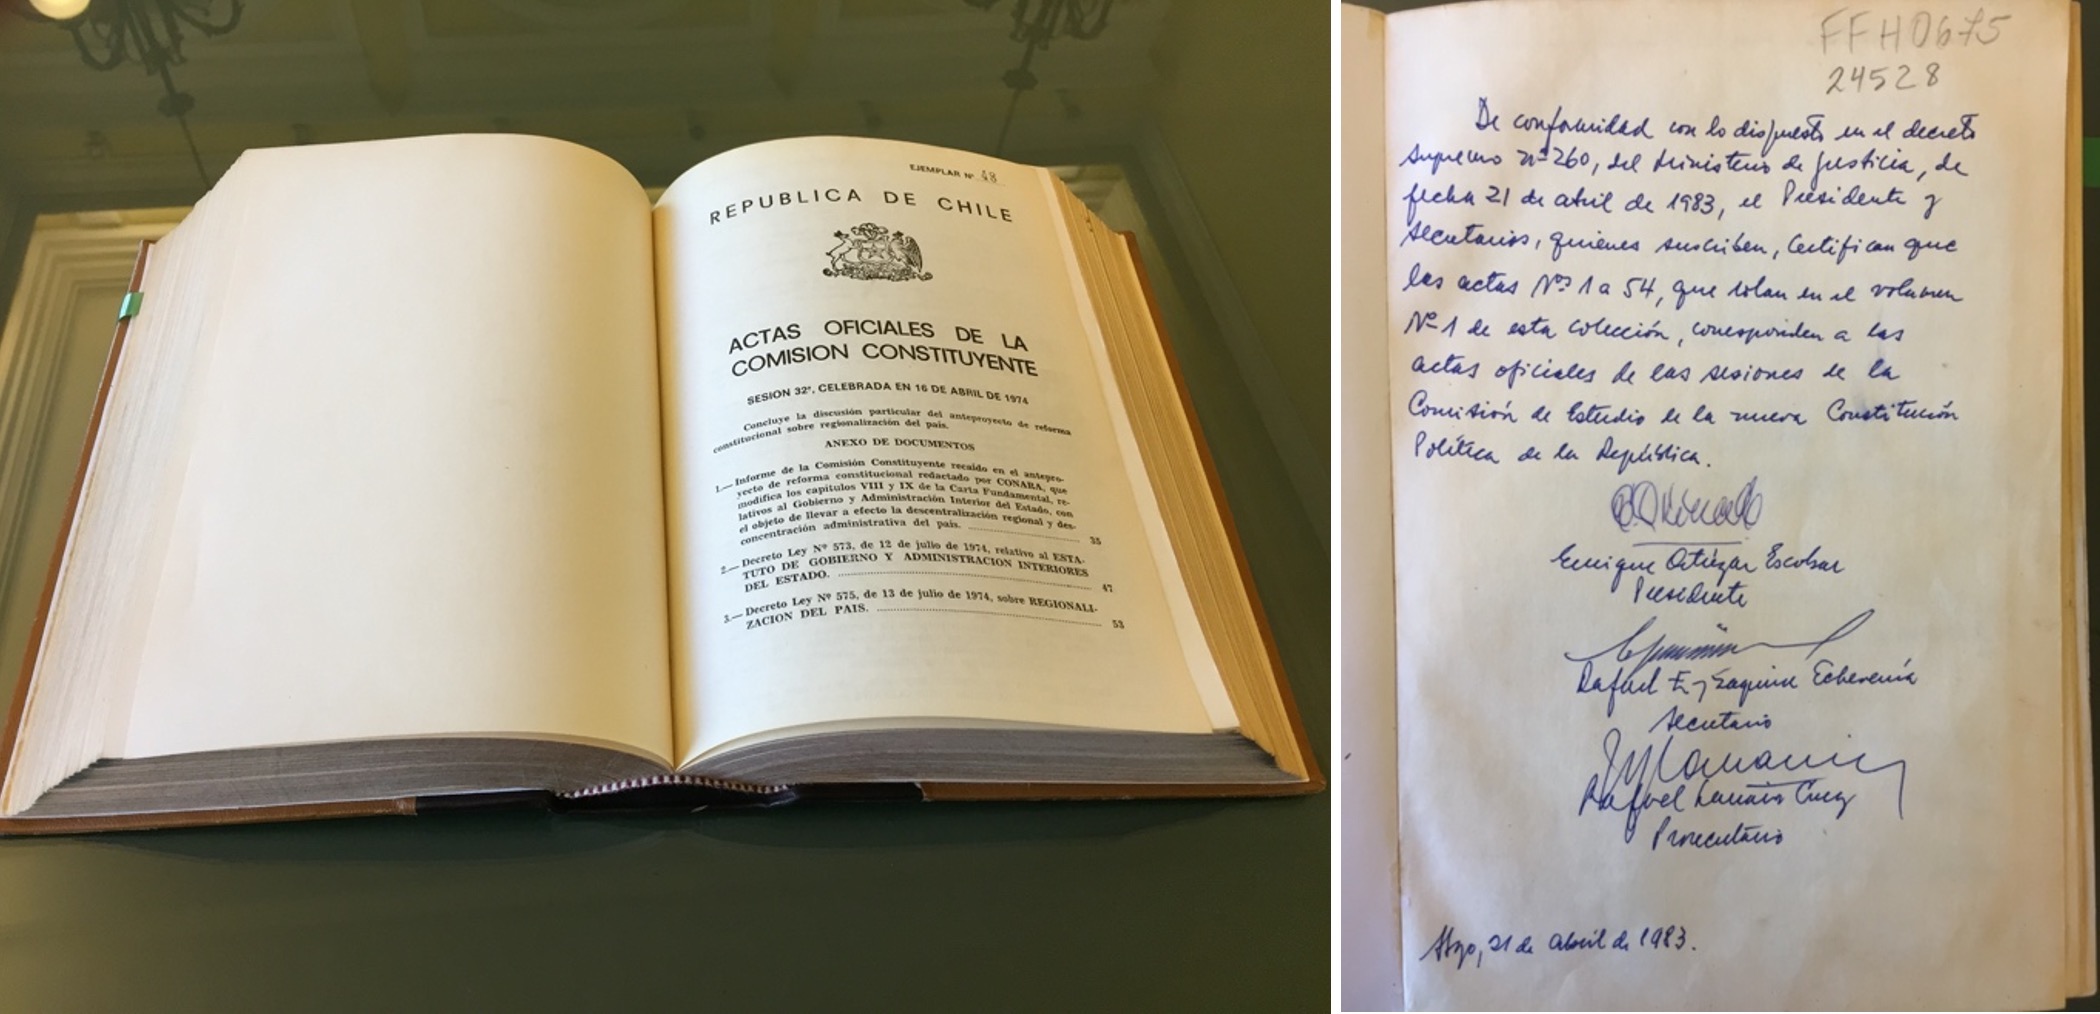 EJEMPLAR Nº 48
REPUBLICA DE CHILE
ACTAS OFICIALES DE LA
COMISION CONSTITUYENTE
SESION 32ª, CELEBRADA EN 16 DE ABRIL DE 1974
Concluye la discusión particular del anteproyecto de reforma
constitucional sobre regionalización del país.
ANEXO DE DOCUMENTOS
1.— Informe de la Comisión Constituyente recaído en el antepro-
yecto de reforma constitucional redactado por CONARA, que
modifica los capítulos VIII y IX de la Carta Fundamental, re-
lativos al Gobierno y Administración Interior del Estado, con
el objeto de llevar a efecto la descentralización regional y des-
concentración administrativa del país. 35
2.— Decreto Ley Nº 573, de 12 de julio de 1974, relativo al ESTA-
TUTO DE GOBIERNO Y ADMINISTRACION INTERIORES
DEL ESTADO. 47
3.— Decreto Ley Nº 575, de 13 de julio de 1974, sobre REGIONALI-
ZACION DEL PAIS. 53
FFH0675
24528
De conformidad con lo dispuesto en el decreto
supremo nº 260, del Ministerio de Justicia, de
fecha 21 de abril de 1983, el Presidente y
Secretarios, quienes suscriben, certifican que
las actas Nºs 1 a 54, que rolan en el volumen
Nº 1 de esta colección, corresponden a las
actas oficiales de las sesiones de la
Comisión de Estudio de la nueva Constitución
Política de la República.
Enrique Ortúzar Escobar
Presidente
Rafael Eyzaguirre Echeverría
Secretario
Rafael Larraín Cruz
Prosecretario
Stgo, 21 de abril de 1983.